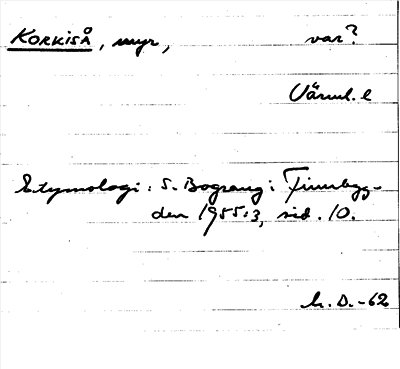 KORKISÅ, myr, var?
Värml. l
Etymologi: S. Bograng i Finnbyg-
den 1955:3, sid. 10.
h. D. -62